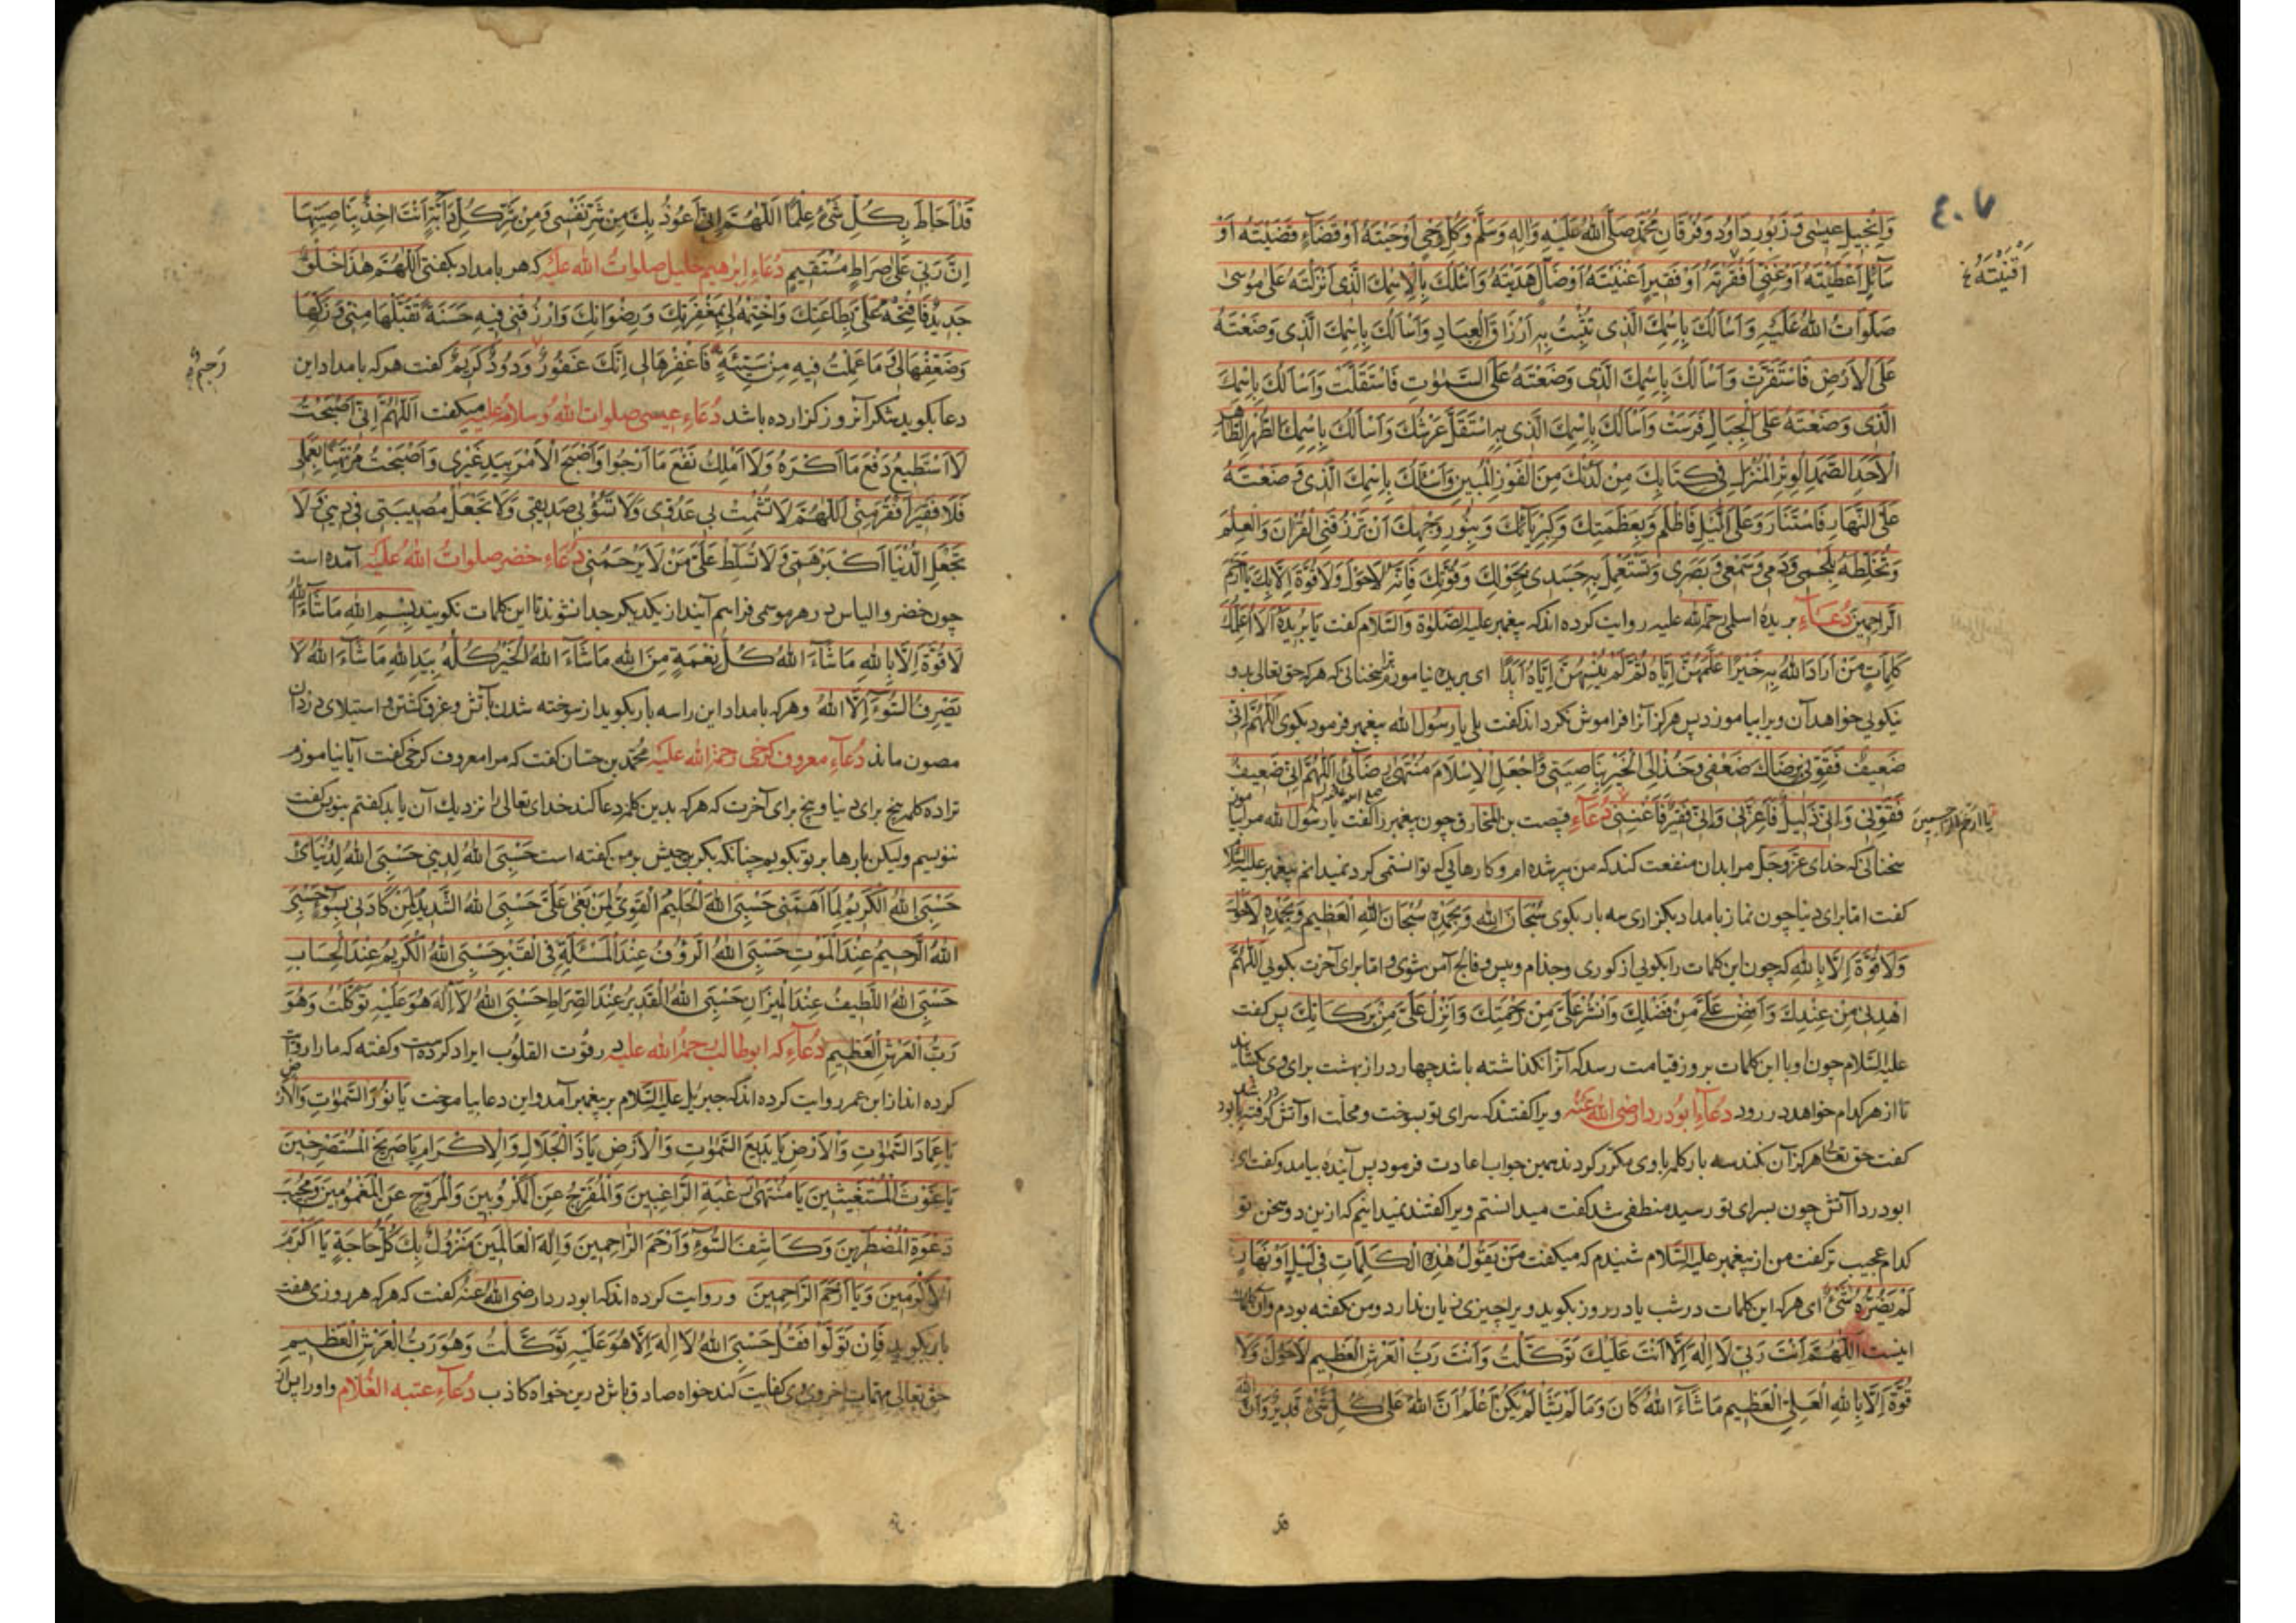 ٤٠٧
وَاِنْجِيلِ عِيسٰى وَزَبُورِ دَاوُدَ وَفُرْقَانِ مُحَمَّدٍ صَلَّى اللهُ عَلَيْهِ وَاٰلِهِ وَسَلَّمَ وَكُلِّ وَحْيٍ اَوْحَيْتَهُ اَوْ قَضَآءٍ قَضَيْتَهُ اَوْ
اَقْنَيْتَهُ خ
سَآئِلٍ اَعْطَيْتَهُ اَوْ غَنِيٍّ اَفْقَرْتَهُ اَوْ فَقِيرٍ اَغْنَيْتَهُ اَوْ ضَآلٍّ هَدَيْتَهُ وَاَسْئَلُكَ بِالْاِسْمِكَ الَّذِى اَنْزَلْتَهُ عَلٰى مُوسٰى
صَلَوَاتُ اللهِ عَلَيْهِ وَاَسْاَلُكَ بِاسْمِكَ الَّذِى تَثْبُتُ بِهِ اَرْزَاقُ الْعِبَادِ وَاَسْاَلُكَ بِاسْمِكَ الَّذِى وَضَعْتَهُ
عَلَى الْاَرْضِ فَاسْتَقَرَّتْ وَاَسْاَلُكَ بِاسْمِكَ الَّذِى وَضَعْتَهُ عَلَى السَّمٰوٰتِ فَاسْتَقَلَّتْ وَاَسْاَلُكَ بِاسْمِكَ
الَّذِى وَضَعْتَهُ عَلَى الْجِبَالِ فَرَسَتْ وَاَسْاَلُكَ بِاسْمِكَ الَّذِى بِهِ اسْتَقَلَّ عَرْشُكَ وَاَسْاَلُكَ بِاسْمِكَ الطُّهْرِ الطَّاهِرِ
الْاَحَدِ الصَّمَدِ الْوِتْرِ الْمُنْزَلِ فِى كِتَابِكَ مِنْ لَدُنْكَ مِنَ الْفَوْزِ الْمُبِينِ وَاَسْئَلُكَ بِاسْمِكَ الَّذِى وَضَعْتَهُ
عَلَى النَّهَارِ فَاسْتَنَارَ وَعَلَى الَّيْلِ فَاَظْلَمَ وَبِعَظَمَتِكَ وَكِبْرِيَآئِكَ وَبِنُورِ وَجْهِكَ اَنْ تَرْزُقَنِى الْقُرْاٰنَ وَالْعِلْمَ
وَتُخَلِّطَهُ بِلَحْمِى وَدَمِى وَسَمْعِى وَبَصَرِى وَتَسْتَعْمِلَ بِهِ جَسَدِى بِحَوْلِكَ وَقُوَّتِكَ فَاِنَّهُ لَا حَوْلَ وَلَا قُوَّةَ اِلَّا بِكَ يَا اَرْحَمَ
الرَّاحِمِينَ دُعَآءِ بريدهٔ اسلمى رحمة الله عليه روايت كرده اند كه پيغمبر عليه الصَّلوٰة والسَّلام كفت يَا بُرَيْدَةُ اَلَا اُعَلِّمُكَ
كَلِمَاتٍ مَنْ اَرَادَ اللهُ بِهِ خَيْرًا عَلَّمَهُنَّ اِيَّاهُ ثُمَّ لَمْ يُنْسِهُنَّ اِيَّاهُ اَبَدًا اى بريده نياموزم ترا سخنانى كه هركه حق تعالى بدو
نيكويى خواهد آن ويرا بياموزد پس هركز آنرا فراموش نكرداند كفت بلى يا رسُول الله پيغمبر فرمود بكوى اَللّٰهُمَّ اِنِّى
ضَعِيفٌ فَقَوِّ فِى رِضَاكَ ضَعْفِى وَخُذْ اِلَى الْخَيْرِ بِنَاصِيَتِى وَاجْعَلِ الْاِسْلَامَ مُنْتَهٰى رِضَآئِى اَللّٰهُمَّ اِنِّى ضَعِيفٌ
يَا اَرْحَمَ الرَّاحِمِينَ
فَقَوِّنِى وَاِنِّى ذَلِيلٌ فَاَعِزَّنِى وَاِنِّى فَقِيرٌ فَاَغْنِنِى دُعَآءِ قبيصت بن المخارق چون پيغمبر را كفت يا رسُول الله مرا بياموز
سخنانى كه خداى عَزَّ وَجَلَّ مرا بدان منفعت كند كه من پير شده ام و كارهايى كه توانستمى كرد نميدانم پيغمبر عليه السّلام
كفت امّا براى دنيا چون نماز بامداد بكزارى سه بار بكوى سُبْحَانَ اللهِ وَبِحَمْدِهِ سُبْحَانَ اللهِ الْعَظِيمِ وَبِحَمْدِهِ لَا حَوْلَ
وَلَا قُوَّةَ اِلَّا بِاللهِ كه چون اين كلمات را بكويى از كورى و جذام و پيس و فالج آمن شوى و امّا براى آخرت بكويى اَللّٰهُمَّ
اهْدِنِى مِنْ عِنْدِكَ وَاَفِضْ عَلَىَّ مِنْ فَضْلِكَ وَانْشُرْ عَلَىَّ مِنْ رَحْمَتِكَ وَاَنْزِلْ عَلَىَّ مِنْ بَرَكَاتِكَ پس كفت
عليه السَّلام چون او با اين كلمات بروز قيامت رسد كه آنرا نكذاشته باشد چهار در از بهشت براى وى بكشايند
تا از هر كدام خواهد در رود دعآءِ ابُو دردا رضى الله عنه ويرا كفتند كه سراى تو بسوخت و محلّت او آتش كرفته بود
كفت حق تعالى هركز آن نكند سه بار كلمه با وى مكرّر كردند همين جواب اعادت فرمود پس آينده بيامد و كفت اى
ابو دردا آتش چون بسراى تو رسيد منطفى شد كفت ميدانستم ويرا كفتند نميدانيم كه ازين دو سخن تو
كدام عجيب تر كفت من از پيغمبر عليه السَّلام شنيدم كه ميكفت مَنْ يَقُولُ هٰذِهِ الْكَلِمَاتِ فِى لَيْلٍ اَوْ نَهَارٍ
لَمْ يَضُرَّهُ شَىْءٌ اى هركه اين كلمات در شب يا در روز بكويد ويرا چيزى زيان ندارد و من بكفته بودم و آن كلمات
اينست اَللّٰهُمَّ اَنْتَ رَبِّى لَا اِلٰهَ اِلَّا اَنْتَ عَلَيْكَ تَوَكَّلْتُ وَاَنْتَ رَبُّ الْعَرْشِ الْعَظِيمِ لَا حَوْلَ وَلَا
قُوَّةَ اِلَّا بِاللهِ الْعَلِىِّ الْعَظِيمِ مَا شَآءَ اللهُ كَانَ وَمَا لَمْ يَشَأْ لَمْ يَكُنْ اَعْلَمُ اَنَّ اللهَ عَلٰى كُلِّ شَىْءٍ قَدِيرٌ وَاَنَّ اللهَ
قَدْ اَحَاطَ بِكُلِّ شَىْءٍ عِلْمًا اَللّٰهُمَّ اِنِّى اَعُوذُ بِكَ مِنْ شَرِّ نَفْسِى وَمِنْ شَرِّ كُلِّ دَآبَّةٍ اَنْتَ اٰخِذٌ بِنَاصِيَتِهَا
اِنَّ رَبِّى عَلٰى صِرَاطٍ مُسْتَقِيمٍ دُعَآءِ اِبرٰهيم خليل صلوات الله عليه كه هر بامداد بكفتى اَللّٰهُمَّ هٰذَا خَلْقٌ
جَدِيدٌ فَافْتَحْهُ عَلَىَّ بِطَاعَتِكَ وَاخْتِمْهُ لِى بِمَغْفِرَتِكَ وَرِضْوَانِكَ وَارْزُقْنِى فِيهِ حَسَنَةً تَقَبَّلْهَا مِنِّى وَزَكِّهَا
وَضَعِّفْهَا لِى وَمَا عَمِلْتُ فِيهِ مِنْ سَيِّئَةٍ فَاغْفِرْهَا لِى اِنَّكَ غَفُورٌ وَدُودٌ كَرِيمٌ كفت هركه بامداد اين
رَحِيمٌ
دعا بكويد شكر آنروز كزارده باشد دُعَآءِ عيسى صلوات الله وسلامه عليه ميكفت اَللّٰهُمَّ اِنِّى اَصْبَحْتُ
لَا اَسْتَطِيعُ دَفْعَ مَا اَكْرَهُ وَلَا اَمْلِكُ نَفْعَ مَا اَرْجُوا وَاَصْبَحَ الْاَمْرُ بِيَدِ غَيْرِى وَاَصْبَحْتُ مُرْتَهَنًا بِعَمَلِى
فَلَا فَقِيرَ اَفْقَرُ مِنِّى اَللّٰهُمَّ لَا تُشْمِتْ بِى عَدُوِّى وَلَا تَسُؤْ بِى صَدِيقِى وَلَا تَجْعَلْ مُصِيبَتِى فِى دِينِى وَلَا
تَجْعَلِ الدُّنْيَا اَكْبَرَ هَمِّى وَلَا تُسَلِّطْ عَلَىَّ مَنْ لَا يَرْحَمُنِى دُعَآءِ خضر صلوات الله عليه آمده است
چون خضر و الياس در هر موسمى فراهم آيند از يكديكر جدا نشوند تا اين كلمات نكويند بِسْمِ اللهِ مَا شَآءَ اللهُ
لَا قُوَّةَ اِلَّا بِاللهِ مَا شَآءَ اللهُ كُلُّ نِعْمَةٍ مِنَ اللهِ مَا شَآءَ اللهُ الْخَيْرُ كُلُّهُ بِيَدِ اللهِ مَا شَآءَ اللهُ لَا
يَصْرِفُ السُّوٓءَ اِلَّا اللهُ وهركه بامداد اين را سه بار بكويد از سوخته شدن بآتش و غرق كشتن و استيلاى دزدان
مصون ماند دُعَآءِ معروف كرخى رحمة الله عليه محمّد بن حسّان كفت كه مرا معروف كرخى كفت آيا نياموزم
ترا ده كلمه پنج براى دنيا و پنج براى آخرت كه هركه بدين كلمه دعا كند خداى تعالى را نزديك آن يابد كفتم بنويس كفت
ننويسم وليكن بارها بر تو بكويم چنانكه بكر بن حبيش بر من كفته است حَسْبِىَ اللهُ لِدِينِى حَسْبِىَ اللهُ لِدُنْيَاىَ
حَسْبِىَ اللهُ الْكَرِيمُ لِمَا اَهَمَّنِى حَسْبِىَ اللهُ الْحَلِيمُ الْقَوِىُّ لِمَنْ بَغٰى عَلَىَّ حَسْبِىَ اللهُ الشَّدِيدُ لِمَنْ كَادَنِى بِسُوٓءٍ حَسْبِىَ
اللهُ الرَّحِيمُ عِنْدَ الْمَوْتِ حَسْبِىَ اللهُ الرَّؤُفُ عِنْدَ الْمَسْئَلَةِ فِى الْقَبْرِ حَسْبِىَ اللهُ الْكَرِيمُ عِنْدَ الْحِسَابِ
حَسْبِىَ اللهُ اللَّطِيفُ عِنْدَ الْمِيزَانِ حَسْبِىَ اللهُ الْقَدِيرُ عِنْدَ الصِّرَاطِ حَسْبِىَ اللهُ لَا اِلٰهَ هُوَ عَلَيْهِ تَوَكَّلْتُ وَهُوَ
رَبُّ الْعَرْشِ الْعَظِيمِ دُعَآءِ كه ابو طالب رحمة الله عليه در قوت القلوب ايراد كرده است و كفته كه ما را روايت
كرده اند از ابن عمر روايت كرده اند كه جبريل عليه السَّلام بر پيغمبر آمد و اين دعا بياموخت يَا نُورَ السَّمٰوٰتِ وَالْاَرْضِ
يَا عِمَادَ السَّمٰوٰتِ وَالْاَرْضِ يَا بَدِيعَ السَّمٰوٰتِ وَالْاَرْضِ يَا ذَا الْجَلَالِ وَالْاِكْرَامِ يَا صَرِيخَ الْمُسْتَصْرِخِينَ
يَا غَوْثَ الْمُسْتَغِيثِينَ يَا مُنْتَهٰى رَغْبَةِ الرَّاغِبِينَ وَالْمُفَرِّجُ عَنِ الْمَكْرُوبِينَ وَالْمُرَوِّحُ عَنِ الْمَغْمُومِينَ وَمُجِيبَ
دَعْوَةِ الْمُضْطَرِّينَ وَكَاشِفَ السُّوٓءِ وَاَرْحَمَ الرَّاحِمِينَ وَاِلٰهَ الْعَالَمِينَ مَنْزُولٌ بِكَ كُلُّ حَاجَةٍ يَا اَكْرَمَ
الْاَكْرَمِينَ وَيَا اَرْحَمَ الرَّاحِمِينَ و روايت كرده اند كه ابو دردا رضى الله عنه كفت كه هركه هر روزى هفت
بار بكويد فَاِنْ تَوَلَّوْا فَقُلْ حَسْبِىَ اللهُ لَا اِلٰهَ اِلَّا هُوَ عَلَيْهِ تَوَكَّلْتُ وَهُوَ رَبُّ الْعَرْشِ الْعَظِيمِ
حق تعالى مهمّات اخروى وى كفايت كند خواه صادق باش درين خواه كاذب دُعَآءِ عتبه الغُلام و او را پس از